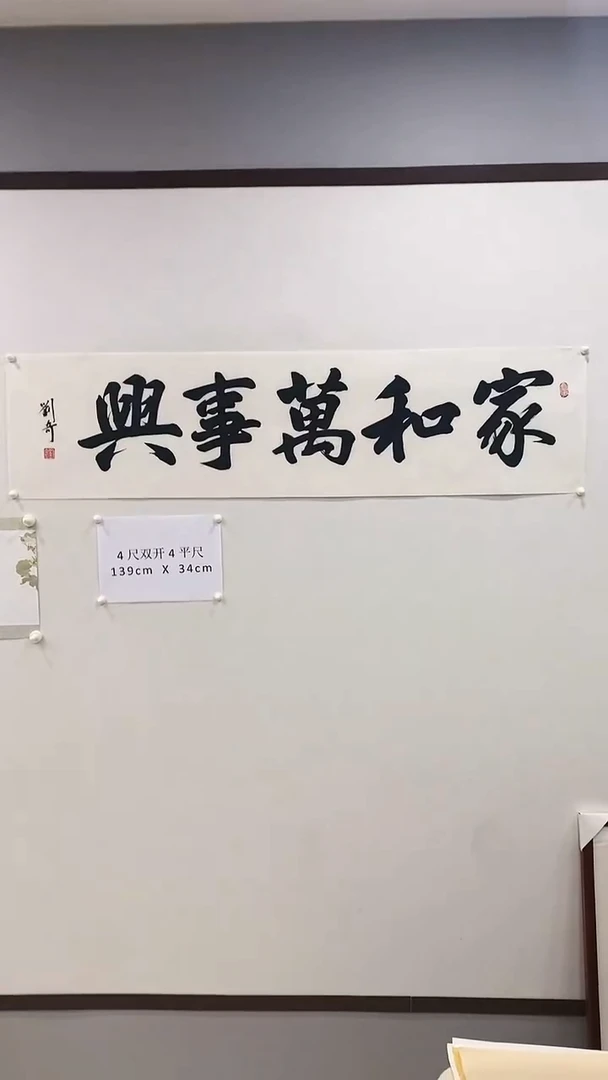 家和萬事興
劉奇
4尺双开4平尺
139cm X 34cm